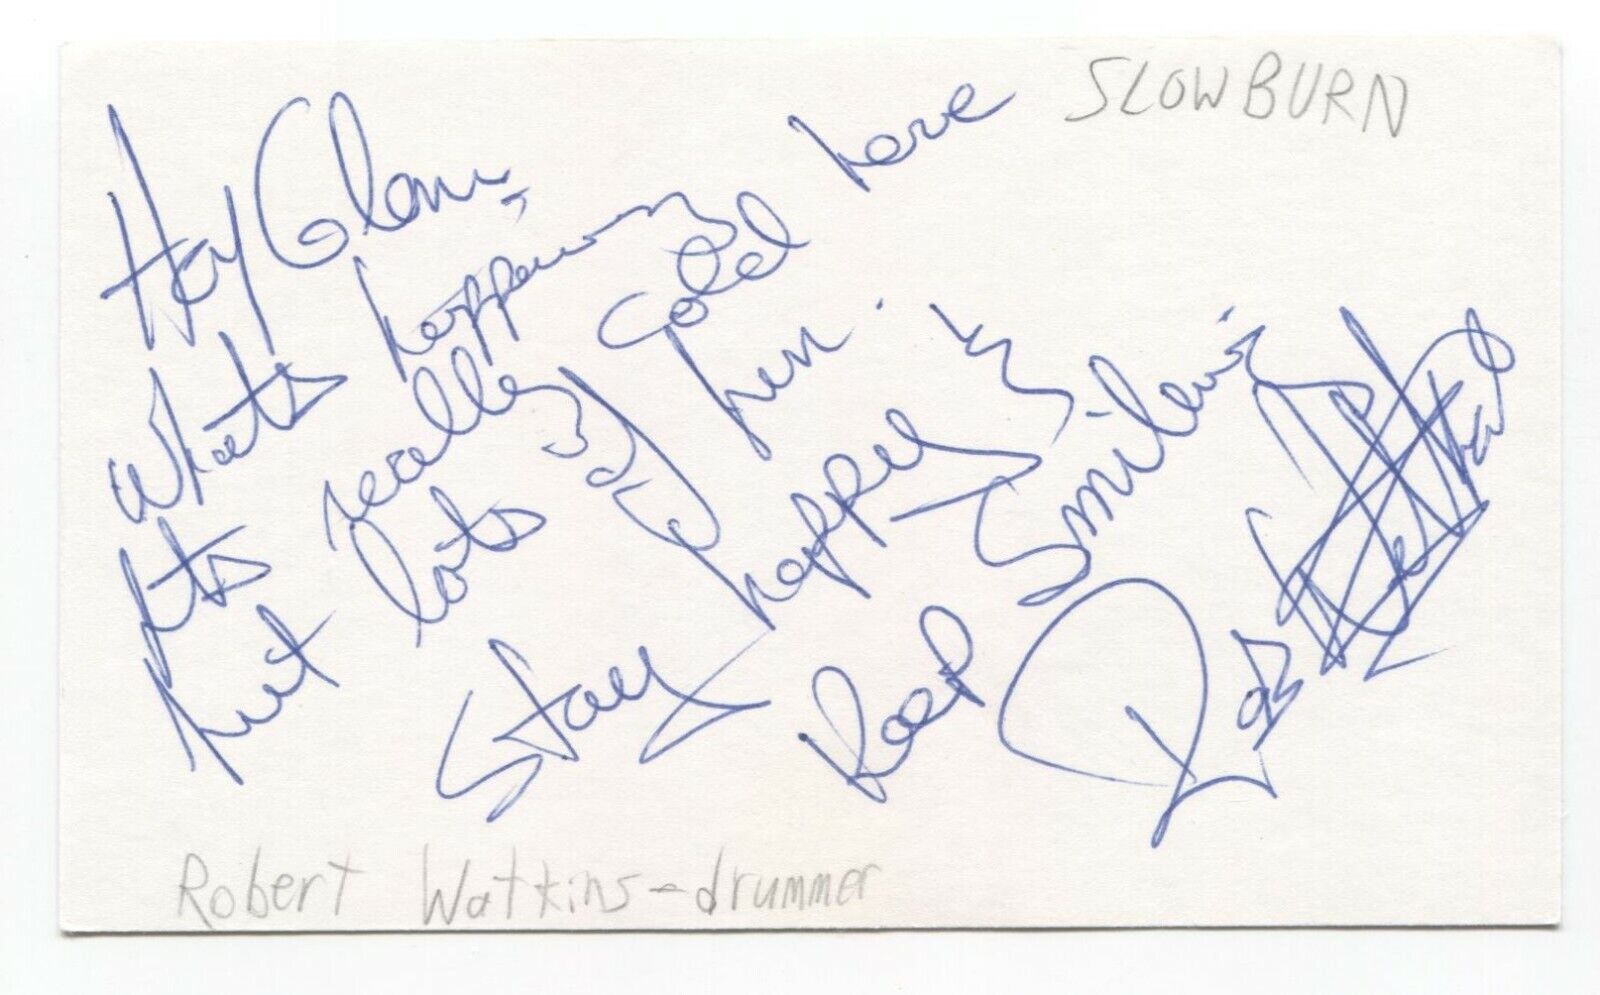 SLOWBURN
Hay Glenn,
Whats happening
Its really cold here
but lots of fun.
Stay happy
Keep Smileing
Rob
Robert Watkins - drummer